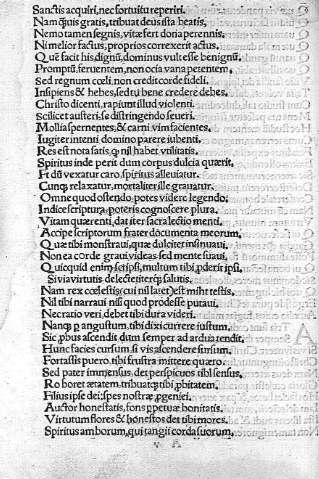 Sanctis acquiri, nec fortuitu reperiri.
Nam quis gratis, tribuat deus ista beatis,
Nemo tamen segnis, vitæ fert dona perennis.
Ni melior factus, proprios correxerit actus.
Quē facit his dignū, dominus vult esse benignū.
Promptū, feruentem, non ocia vana terentem.
Sed regnum cœli, non credit corde fideli.
Insipiens & hebes, sed tu bene credere debes.
Christo dicenti, rapiunt illud violenti.
Scilicet austeri, se distringendo seueri.
Mollia spernentes, & carni vim facientes.
Iugiter intenti domino parere iubenti.
Res est nota satis, qȝ nil habet vtilitatis.
Spiritus inde perit dum corpus dulcia quærit.
Et dū vexatur caro, spiritus alleuiatur.
Cunqȝ relaxatur, mortaliter ille grauatur.
Omne quod ostendo, potes videre legendo:
Indice scriptura, poteris cognoscere plura.
Vitam quærenti, dat iter sacra lectio menti.
Accipe scriptorum frater documenta meorum.
Quæ tibi monstraui, quæ dulciter insinuaui.
Non ea corde graui videas sed mente suaui.
Quicquid enim scripsi, multum tibi, pderit ipsi.
Si via virtutis delectet iterqȝ salutis.
Nam rex cœlestis, cui nil latet est mihi testis,
Nil tibi narraui nisi quod prodesse putaui.
Nec ratio veri, debet tibi dura videri.
Nanqȝ p angustum, tibi dixi currere iustum.
Sic, pbus ascendit dum semper ad ardua tendit.
Hunc facies cursum si vis ascendere sursum.
Fortassis puero, tibi frustra mittere quæro.
Sed pater immensus, det perspicuos tibi sensus.
Roboret ætatem, tribuatqȝ tibi, pbitatem.
Filius ipse dei, spes nostræ, pgeniei.
Auctor honestatis, fons ppetuæ bonitatis.
Virtutum flores & honestos det tibi mores.
Spiritus amborum, qui tangit corda suorum,
v A